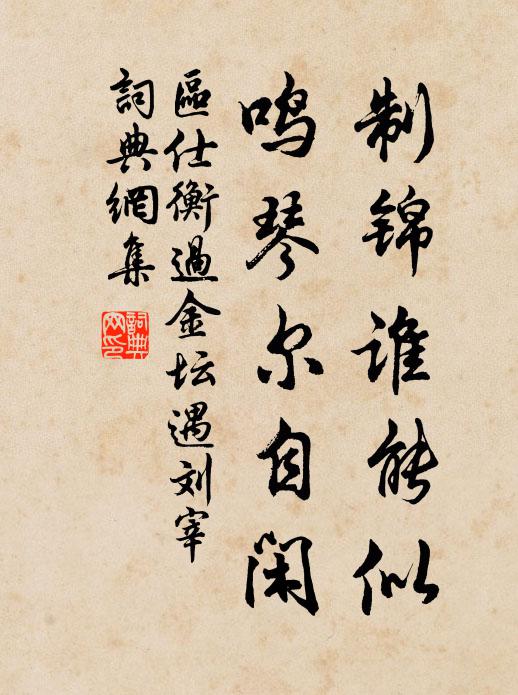 制锦谁能似
鸣琴尔自闲
區仕衡過金坛遇刘宰
詞典網集
詞典网印